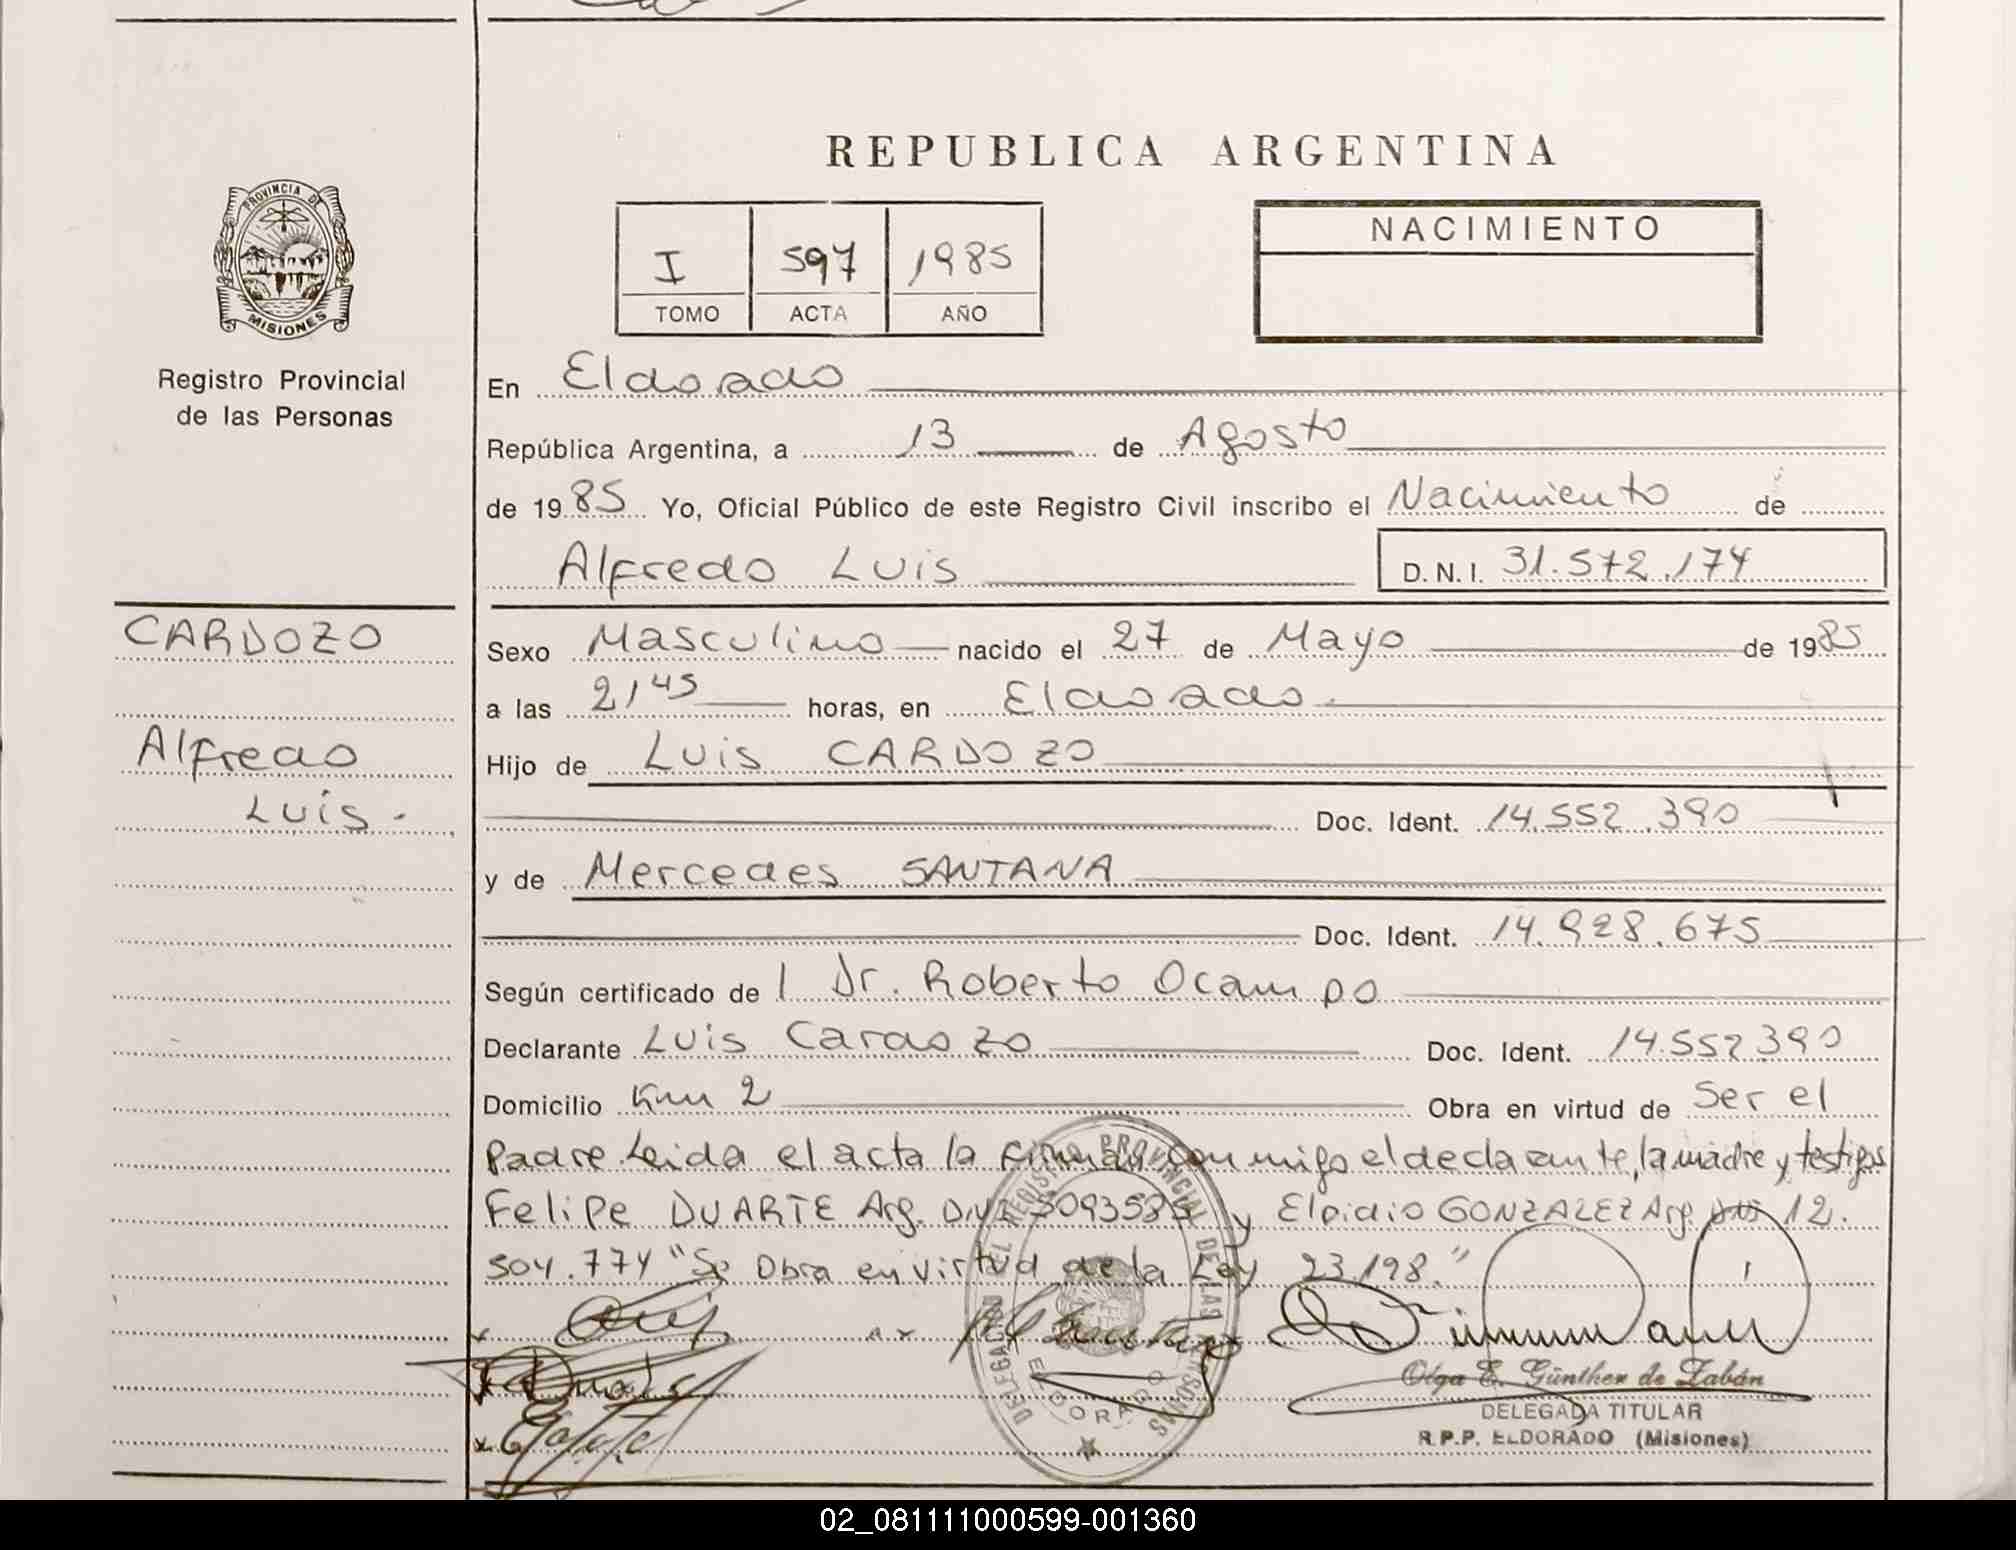 REPUBLICA ARGENTINA
PROVINCIA DE
MISIONES
Registro Provincial
de las Personas
I 597 1985
TOMO ACTA AÑO
NACIMIENTO
En Eldorado
República Argentina, a 13 de Agosto
de 1985 Yo, Oficial Público de este Registro Civil inscribo el Nacimiento de
Alfredo Luis D.N.I. 31.572.174
CARDOZO
Alfredo
Luis.
Sexo Masculino nacido el 27 de Mayo de 1985
a las 2145 horas, en Eldorado.
Hijo de Luis CARDOZO
Doc. Ident. 14.552.390
y de Mercedes SANTANA
Doc. Ident. 14.928.675
Según certificado de l Dr. Roberto Ocampo
Declarante Luis Cardozo Doc. Ident. 14.552390
Domicilio Km 2 Obra en virtud de Ser el
Padre. Leida el acta la firman conmigo el declarante, la madre y testigos
Felipe DUARTE Arg. DNI y Elpidio GONZALEZ Arg. DNI 12.
504.774 "Se Obra en virtud de la Ley 23.198."
DELEGACION EL REGISTRO PROVINCIAL DE LAS
ELDORADO
Olga E. Günther de Zabán
DELEGADA TITULAR
R.P.P. ELDORADO (Misiones)
02_081111000599-001360